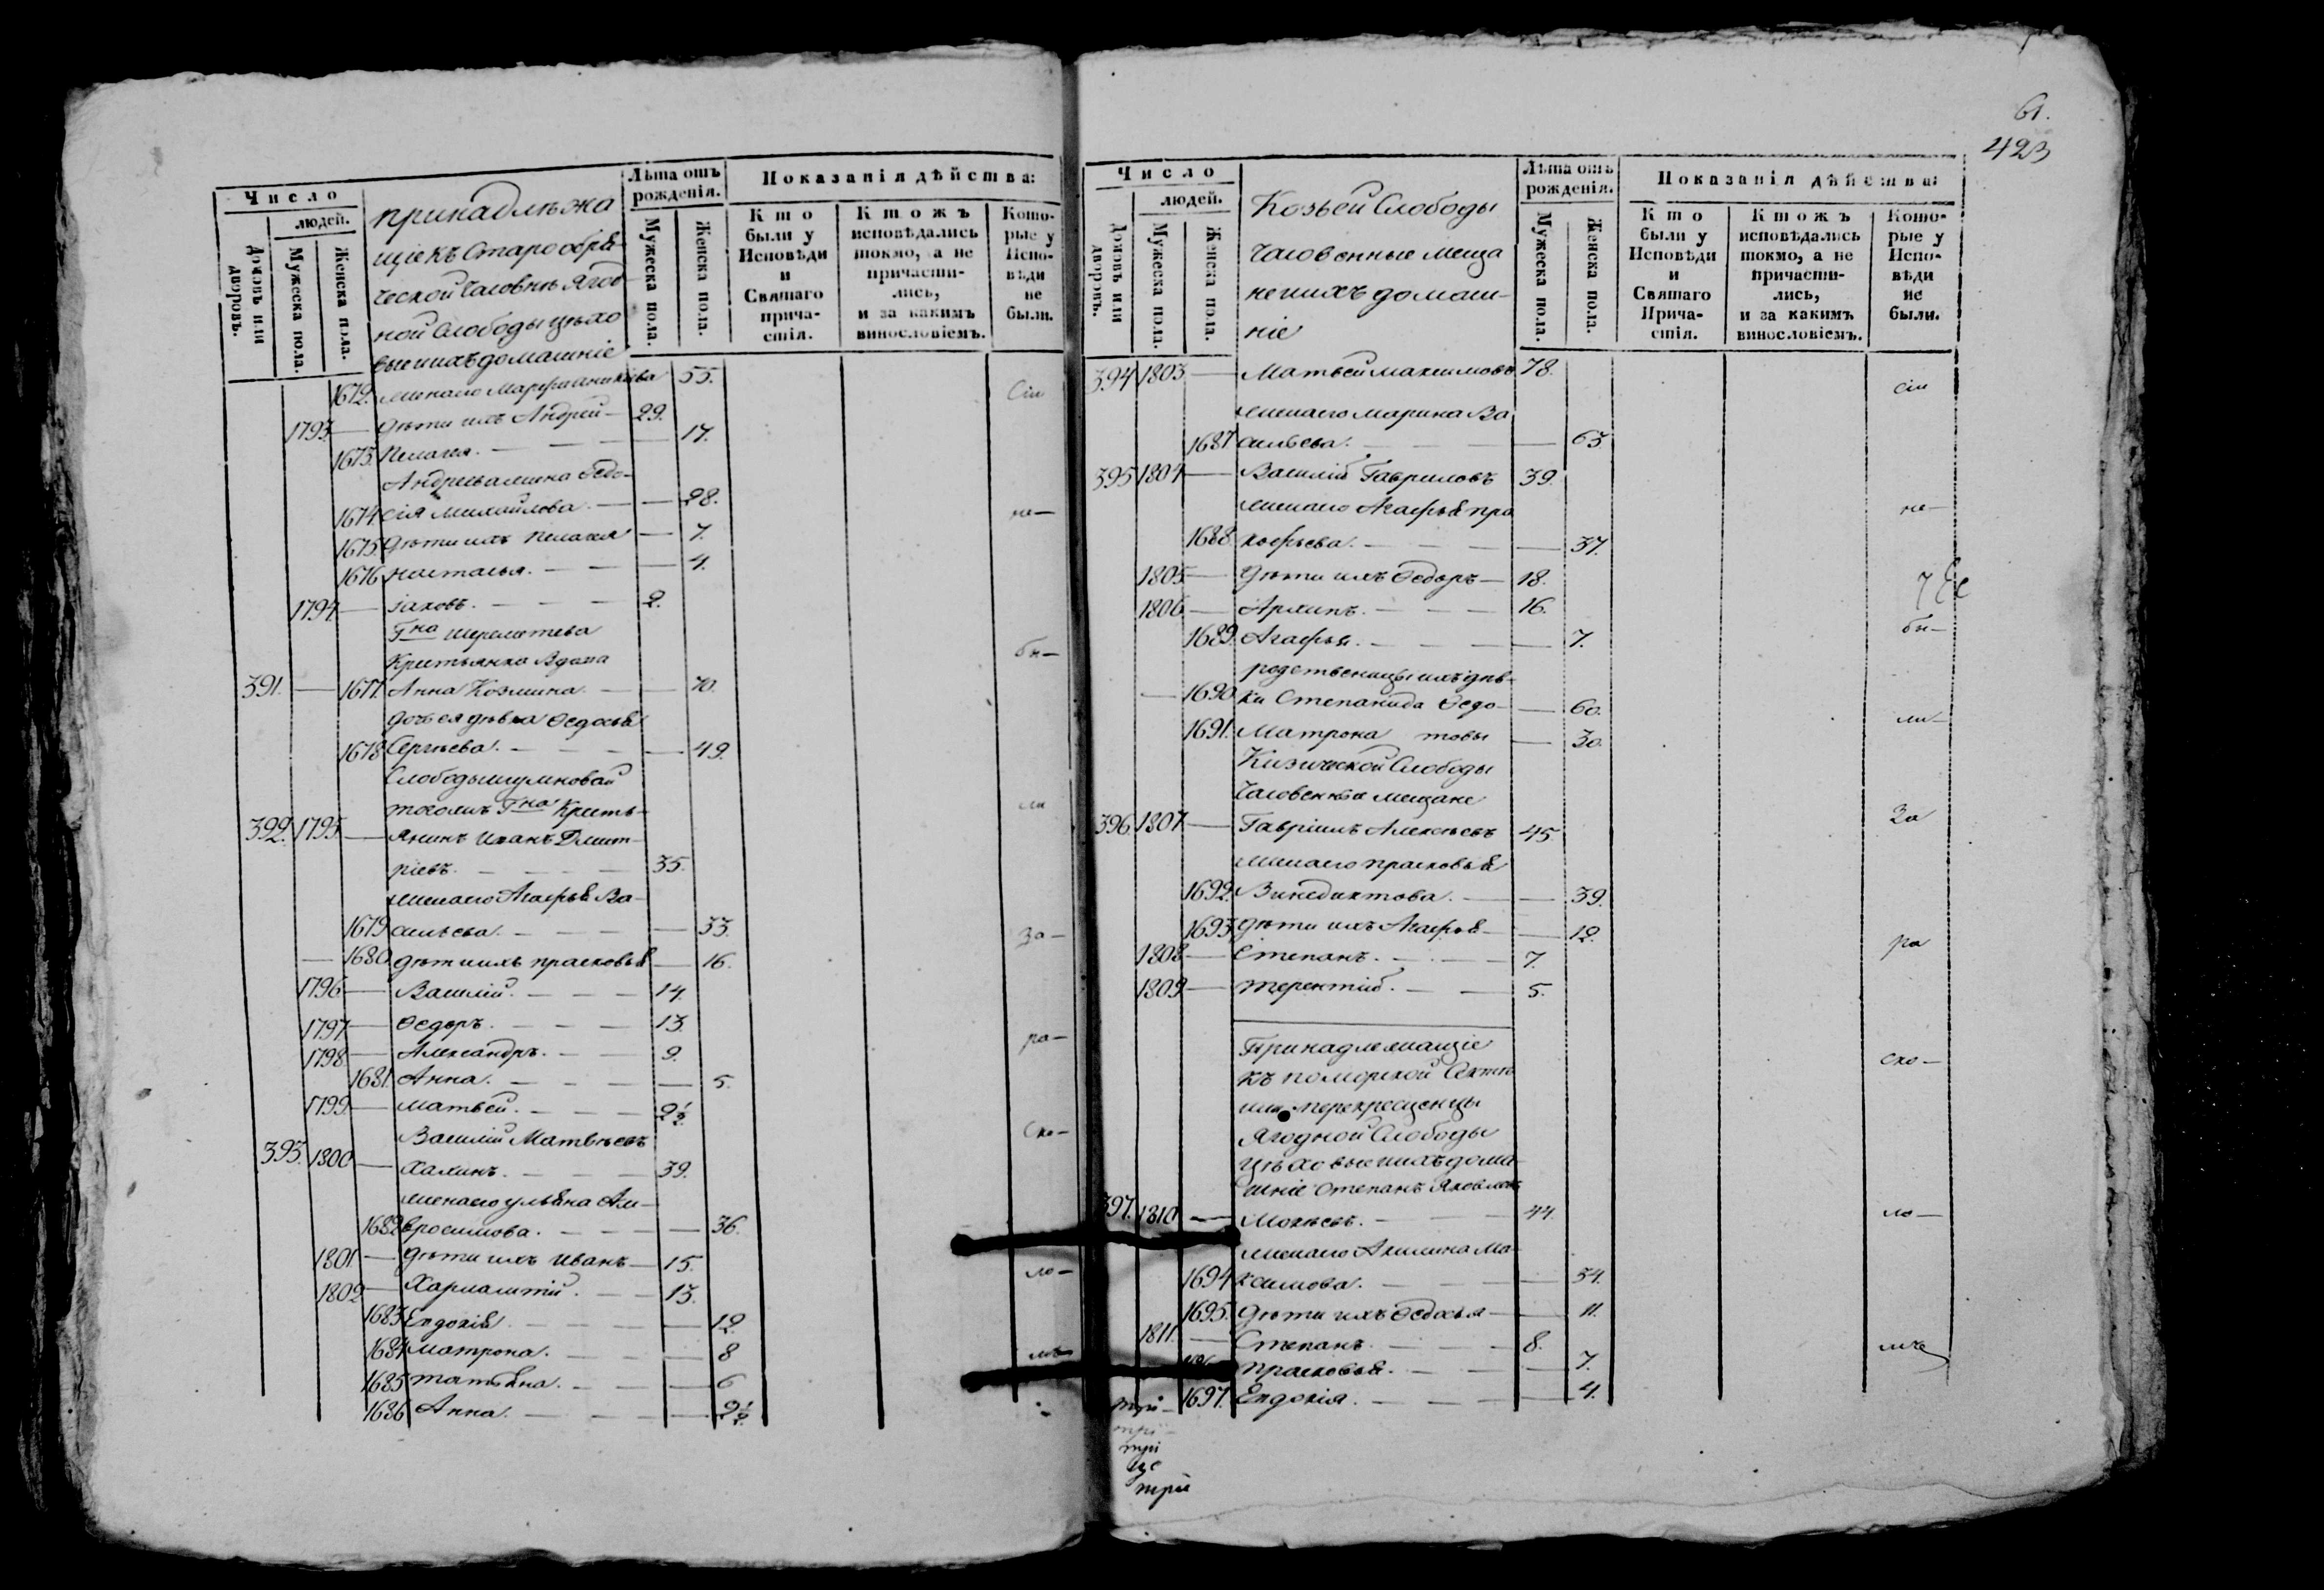 Число
людей.
Домовъ или дворовъ.
Мужеска пола.
Женска пола.
принадлѣжа
щіе къ Старообряд
ческой часовнѣ Ягод
ной Слободы цѣхо
вые и ихъ домашніе
Лѣта отъ рожденія.
Мужеска пола.
Женска пола.
Показанія дѣйства:
Кто были у Исповѣди и Святаго причастія.
Ктожъ исповѣдались токмо, а не причастились, и за какимъ винословіемъ.
Которые у Исповѣди не были.
1672. жена его Марфа 55. Сіи
1793 — дѣти ихъ Андрей — 29.
1673. Пелагея. — — — 17.
Андреева жена Ѳедо-
1674 сія Михайлова. — — 28. не —
1675. дѣти ихъ Пелагея — 7.
1676 Настасья. — — — 4.
1794 — Іаковъ. — — — 2.
Гна Шереметева
Крестьянка Вдова бы —
391. — 1677. Анна Козмина. — — 70.
дочь ея дѣвка Ѳедосья
1678 Сергѣева. — — — 49.
Слободы
тогожъ Гна Кресть- ли
392. 1795 — янинъ Иванъ Дмит-
ріевъ. — — — 35.
жена его Агафья Ва-
1679 сильева. — — — 33. за —
— 1680. дѣти ихъ прасковья — 16.
1796 — Василій. — — — 14.
1797 — Ѳедоръ. — — — 13.
1798 — Александръ. — — 9. ра —
1681. Анна. — — — 5.
1799 — Матвей. — — — 2½
Василій Матвѣевъ ско —
393. 1800 — Халинъ. — — — 39.
жена его ульяна Ам-
1682 вросимова. — — — 36.
1801. — дѣти ихъ Иванъ — 15.
1802 — Харлампій. — — 13. ло —
1683 Евдокія. — — — 12.
1684 Матрона. — — — 8
1685 татьяна. — — — 6
1686 Анна. — — — 2½
61.
423
Число
людей.
Домовъ или дворовъ.
Мужеска пола.
Женска пола.
Козьей Слободы
часовенные меща
не и ихъ домаш-
ніе
Лѣта отъ рожденія.
Мужеска пола.
Женска пола.
Показанія дѣйства:
Кто были у Исповѣди и Святаго Причастія.
Ктожъ исповѣдались токмо, а не причастились, и за какимъ винословіемъ.
Которые у Исповѣди не были.
394 1803 — Матвей Максимовъ 78. сіи
жена его Марина Ва
1687 сильева. — — — 63
395 1804 — Василій Гавриловъ 39.
жена его Агафья про не —
1688 кофьева. — — — 37.
1805 — дѣти ихъ Ѳедоръ — 18.
1806 — Архипъ. — — — 16.
1689. Агафья. — — — 7. бы —
родственницы ихъ дѣв-
— 1690 ки Степанида Ѳедо- — 60.
1691. Матрона товы — 30. ли —
Кизической Слободы
Часовенные мещане
396. 1807 — Гавріилъ Алексѣевъ 45. За
жена его прасковья
1692. Винедиктова. — — 39.
1693 дѣти ихъ Агафья — — 12.
1808 — Степанъ. — — 7. ра
1809 — терентій. — — 5.
Принадлежащіе
къ поморской Сектѣ ско —
или перекрещенцы
Ягодной Слободы
цѣховые и ихъ дома
шніе Степанъ Яковлевъ
397. 1810 — Мокѣевъ. — — 44. ло —
жена его Акилина Ма-
1694 ксимова. — — — 34.
1695. дѣти ихъ Ѳедосья — — 11.
1811. — Степанъ. — — 8.
прасковья. — — 7.
1697. Евдокія. — — — 4.
три —
три —
три
це
три